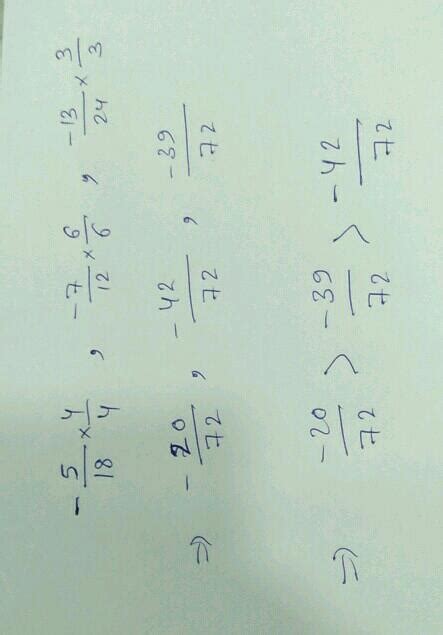 -5/18 × 4/4 , -7/12 × 6/6 , -13/24 × 3/3
⇒ -20/72 , -42/72 , -39/72
⇒ -20/72 > -39/72 > -42/72